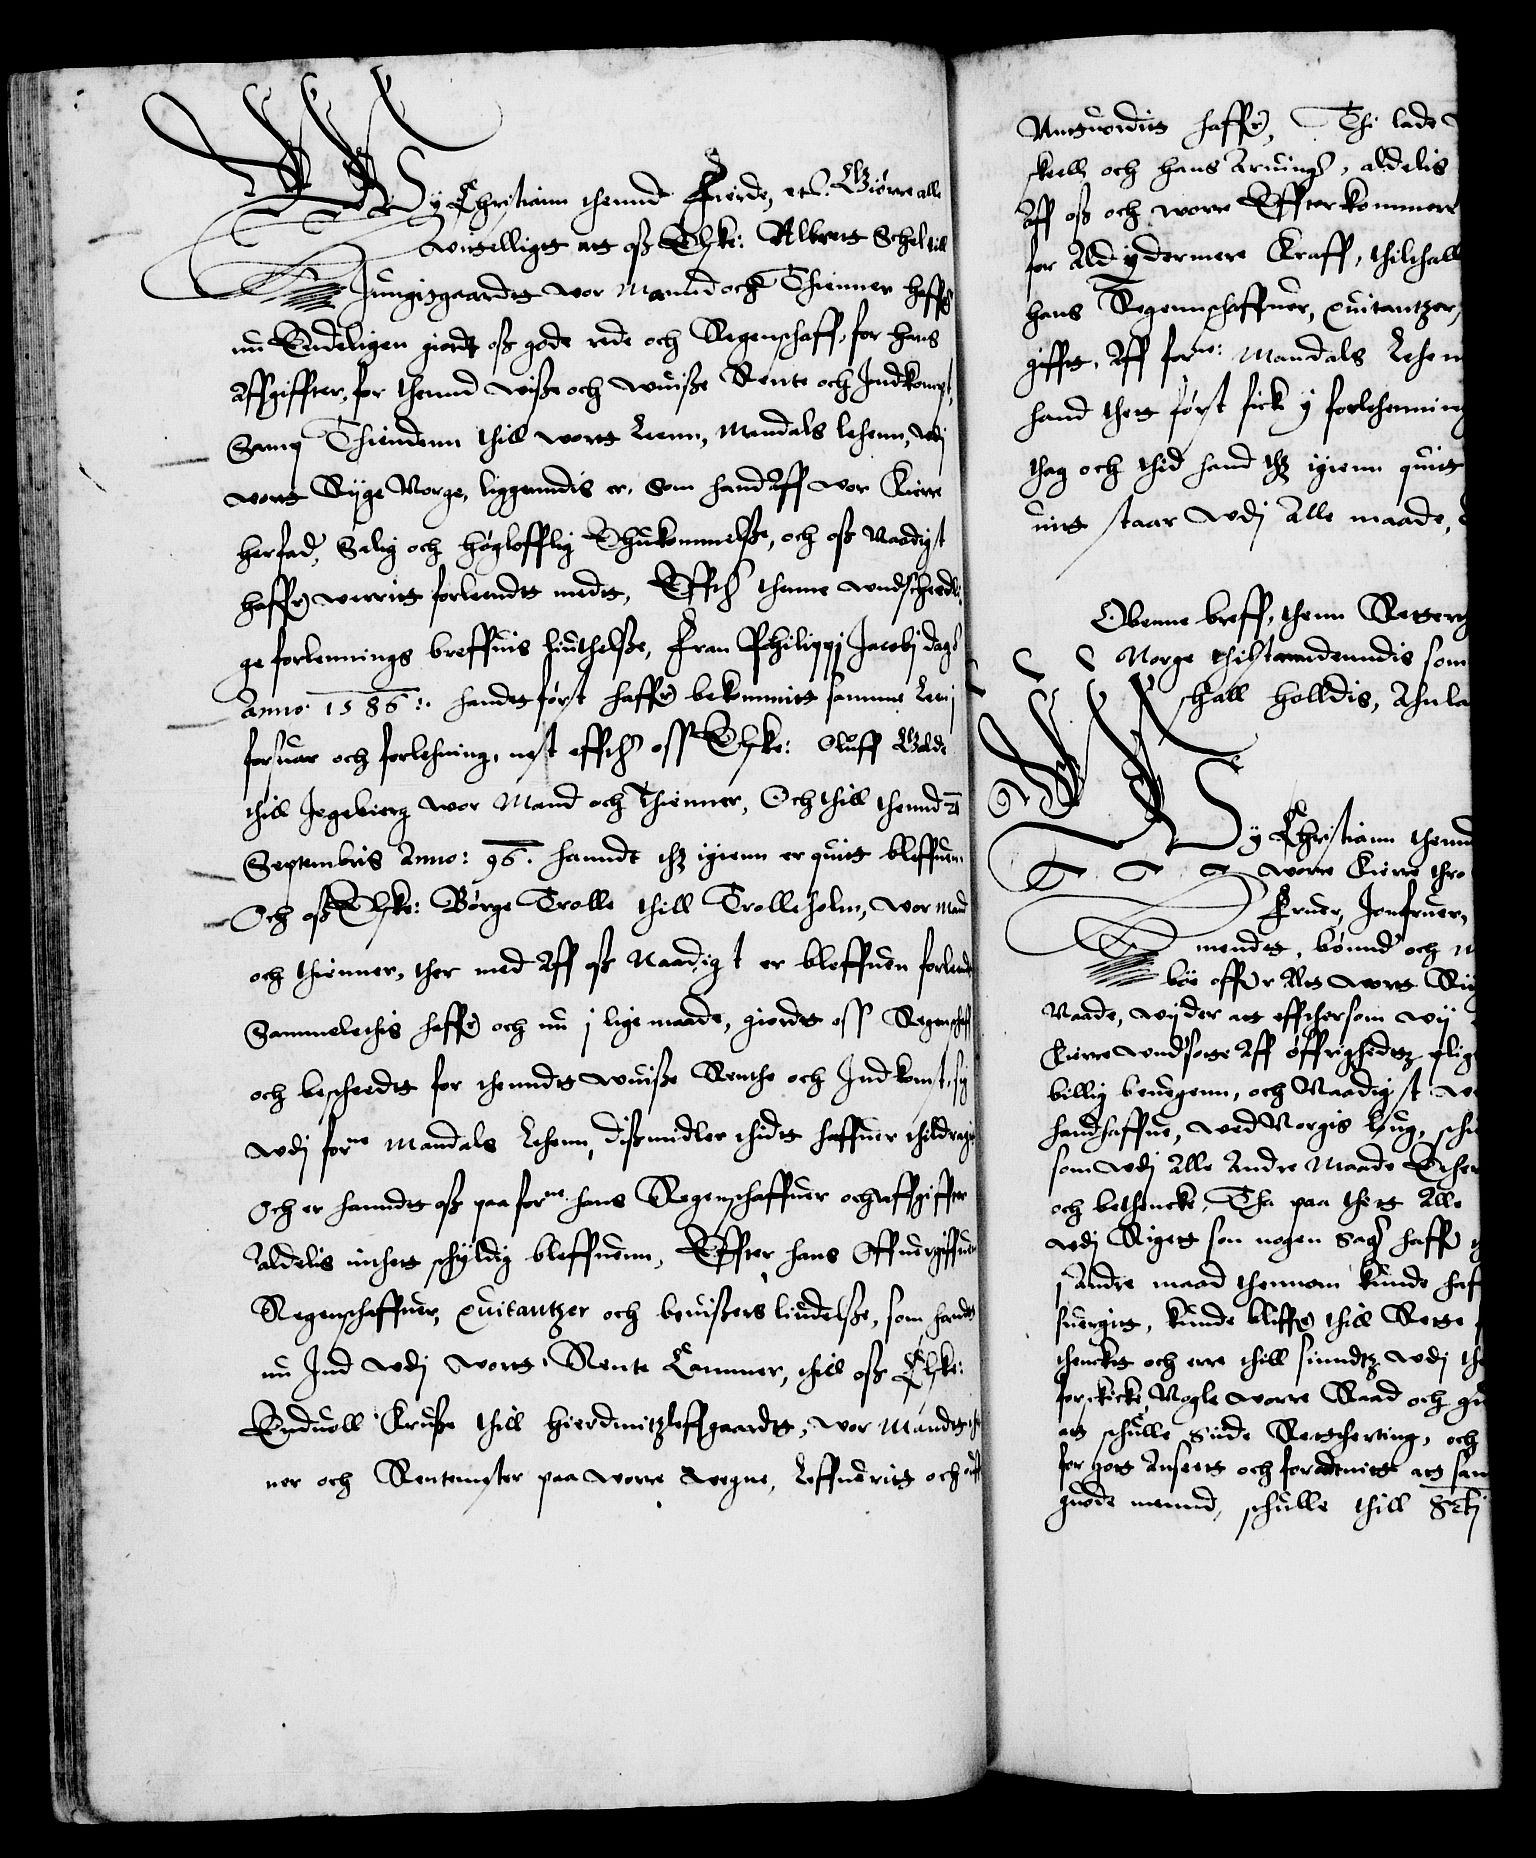 Wy Christiann thennd Fierde, etc. Giørre alle
witterligtt att oss Elske: Albrett Schel till
Jungitzgaardtt wor Mannd och Thienner haffer
nu Endeligen giordt oss gode rede och Regenschaff, for hans
Affgiffter, for thennd wisse och wuisse Rente och Indkompst,
Samptt Thiendenn thill wortt Leenn, Mandals lehenn, wdj
wortt Ryge Norge, liggenndis er, Som hand Aff wor Kierre
herfader, Salig och høglofflig Ihukommelsse, och oss Naadigst
haffuer werritt forleendtt medtt, Effter thenne wndscheedli:
ge forlennings breffuis liudelsse, Fran Philippj Jacobj dag
Anno 1586: handtt først haffuer bekommitt samme Leen j
forsuar och forlehning, nest effter oss Elske: Oluff Galde
thill Jegebierg wor Mand och Thienner, Och thill thennd 21
Septembris Anno: 96. hanndt thz igienn er quitt bleffuen.
Och oss Elske: Børge Trolle thill Trolleholm, wor Mand
och thienner, ther med Aff oss Naadigst er bleffuen forlendt
Sammeledis haffuer och nu j lige maade, giordtt oss Regenschaff
och bescheedtt for thenndtt wuisse Renthe och Indkomst, sig
wdj forne Mandals Lehenn, dissmidler thidtt haffuer thildragit
Och er hanndtt oss paa forne hans Regenschaffuer och Affgiffter
Aldelis inthett schyldig bleffuenn, Effter hans Offuergiffuen
Regenschaffuer, quitantzer och beuissers liudelsse, som handtt
nu Ind wdj wortt Rente Cammer, thill oss Elske:
Enduoll Krusse thill Hierdmitzleffgaardtt, wor Mandtt thie
ner och Rentemester paa worre wegne, Leffueritt och offuer
Antuorditt haffuer, Thi lade
skell och hans Aruinge, aldelis
Aff oss och worre Effterkommere
for Ald ydermere Kraff, thilthall
hans Regennschaffuer, quitantzer,
gifftt, Aff forne: Mandals Lehenn
hand thett først fick y forlehenning
thag och thid hand thz igienn quitt
uitt staar wdj Alle maade,
Obenne breff, thenn Retterg
Norge thilstaandenndis som
schall holldis, Ahnla
Wy Christiann thennd
worre Kierre thro
Fruer, Jomfruer,
mendtt, bønnder och
bøe offuer Altt wortt Ryg
Naade, wijder att effthersom wij
Kierre wndersotte Aff øffrighedtz plig
billig beuegenn, och Naadigst
handhaffue, wed Norgis loug, sch
som wdj Alle Andre Maade
och bethencke, Tha paa thett Alle
wdj Rigett son nogen Sag haffuer
j Andre maad thennom kunde haf
suergitt, kunde bliffue thill Rette
thencktt och erre thill sinndtz wdj th
forskicke Nogle worre Raad och gu
att schulle Side Retterting, och
for gott Anseett och forordnitt att san
guode mennd, schulle thill Sckj